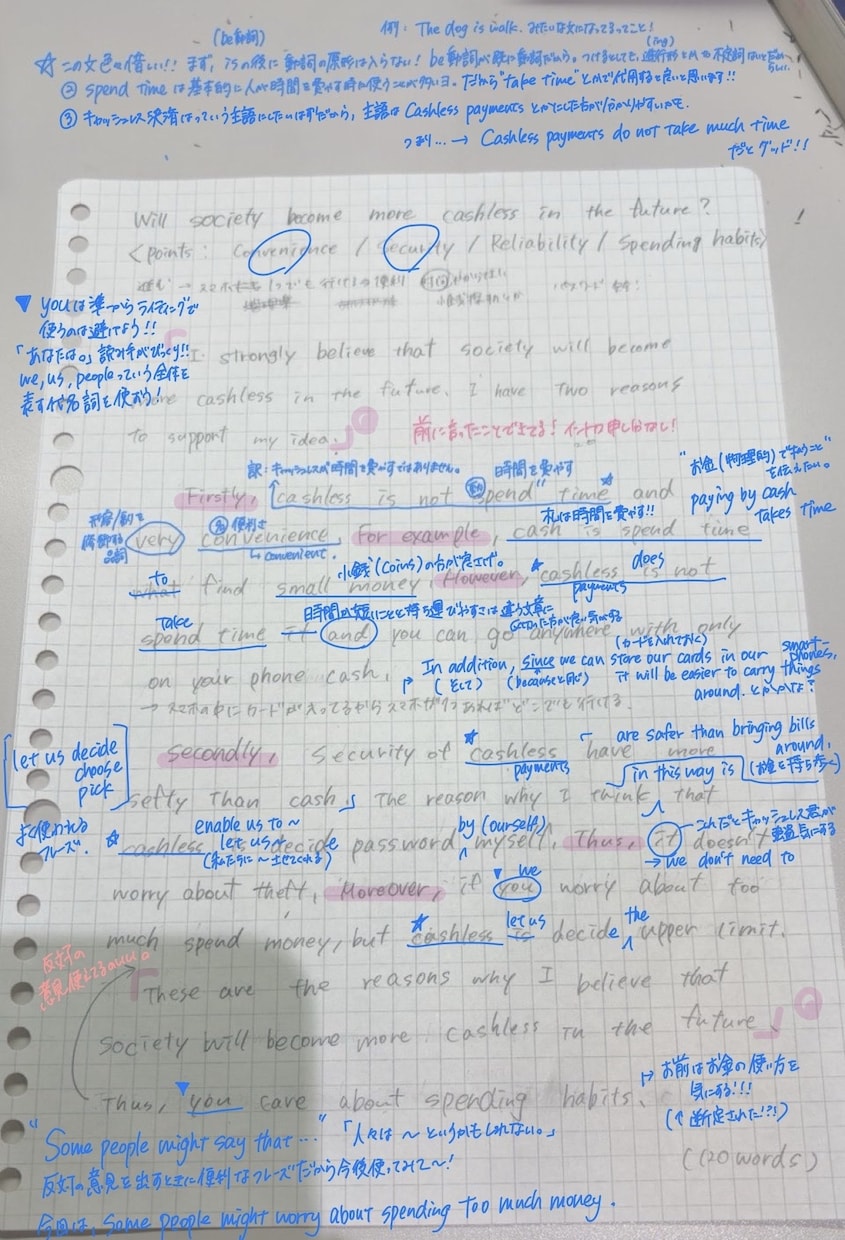 (be動詞)
例: The dog is walk. みたいな文になってるってこと!
☆この文色々惜しい!! まず, isの後に動詞の原形は入らない! be動詞が既に動詞だから。
(ing)
② spend time は基本的に人が時間を費やす時に使うことが多いヨ。だから"take time"とかで代用すると良いと思います!!
③ キャッシュレス決済はっていう主語にしたいはずだから, 主語は Cashless payments とかにした方が分かりやすいかも.
つまり… → Cashless payments do not take much time
だとグッド!!
Will society become more cashless in the future?
<points: Convenience / Security / Reliability / Spending habits>
▼ youは準一からライティングで
使うのは避けよう!!
「あなたは。」読み手がびっくり!!
we, us, peopleっていう全体を
表す代名詞を使おう!
I strongly believe that society will become
more cashless in the future. I have two reasons
to support my idea.
前に言ったことできてる! イントロ申し分なし!
訳: キャッシュレスが時間を費やすではありません。
時間を費やす
"お金(物理的)で払うこと"
を伝えたい。
Firstly, cashless is not "spend" time and
paying by cash
takes time
形容/副を
修飾する
品詞
名 便利さ
札は時間を費やす!!
very convenience. For example, cash is spend time
↳ convenient.
小銭(coins)の方が良さげ。
to
does
what find small money. However, cashless is not
payments
take
時間が短いことと持ち運びやすさは違う文章に
spend time it and you can go anywhere with only
(カードを入れておく)
on your phone cash.
In addition, since we can store our cards in our smart-
phones,
(そして) (becauseと同じ)
it will be easier to carry things
around. とかかな?
→ スマホの中にカードが入ってるからスマホが1つあれば"どこでも行ける.
let us decide
choose
pick
よく使われる
フレーズ.
Secondly, Security of cashless have more
payments
are safer than bringing bills
around.
(お金を持ち歩く)
in this way is
setty Than cash. The reason why I think that
enable us to ~
let us ~
(私たちに~させてくれる)
by (ourself)
これだとキャッシュレス君が
cashless is decide password myself. Thus, it doesn't
→ we don't need to
we
worry about theft. Moreover, if you worry about too
let us
the
much spend money, but cashless is decide upper limit.
反対の
意見使えてるnice
These are the reasons why I believe that
society will become more cashless in the future.
Thus, you care about spending habits.
お前はお金の使い方を
気にする!!!
(↑断定された!?!)
"Some people might say that…" 「人々は~というかもしれない。」
反対の意見を出すときに便利なフレーズだから今後使ってみて~!
(120 words)
今回は, Some people might worry about spending too much money.